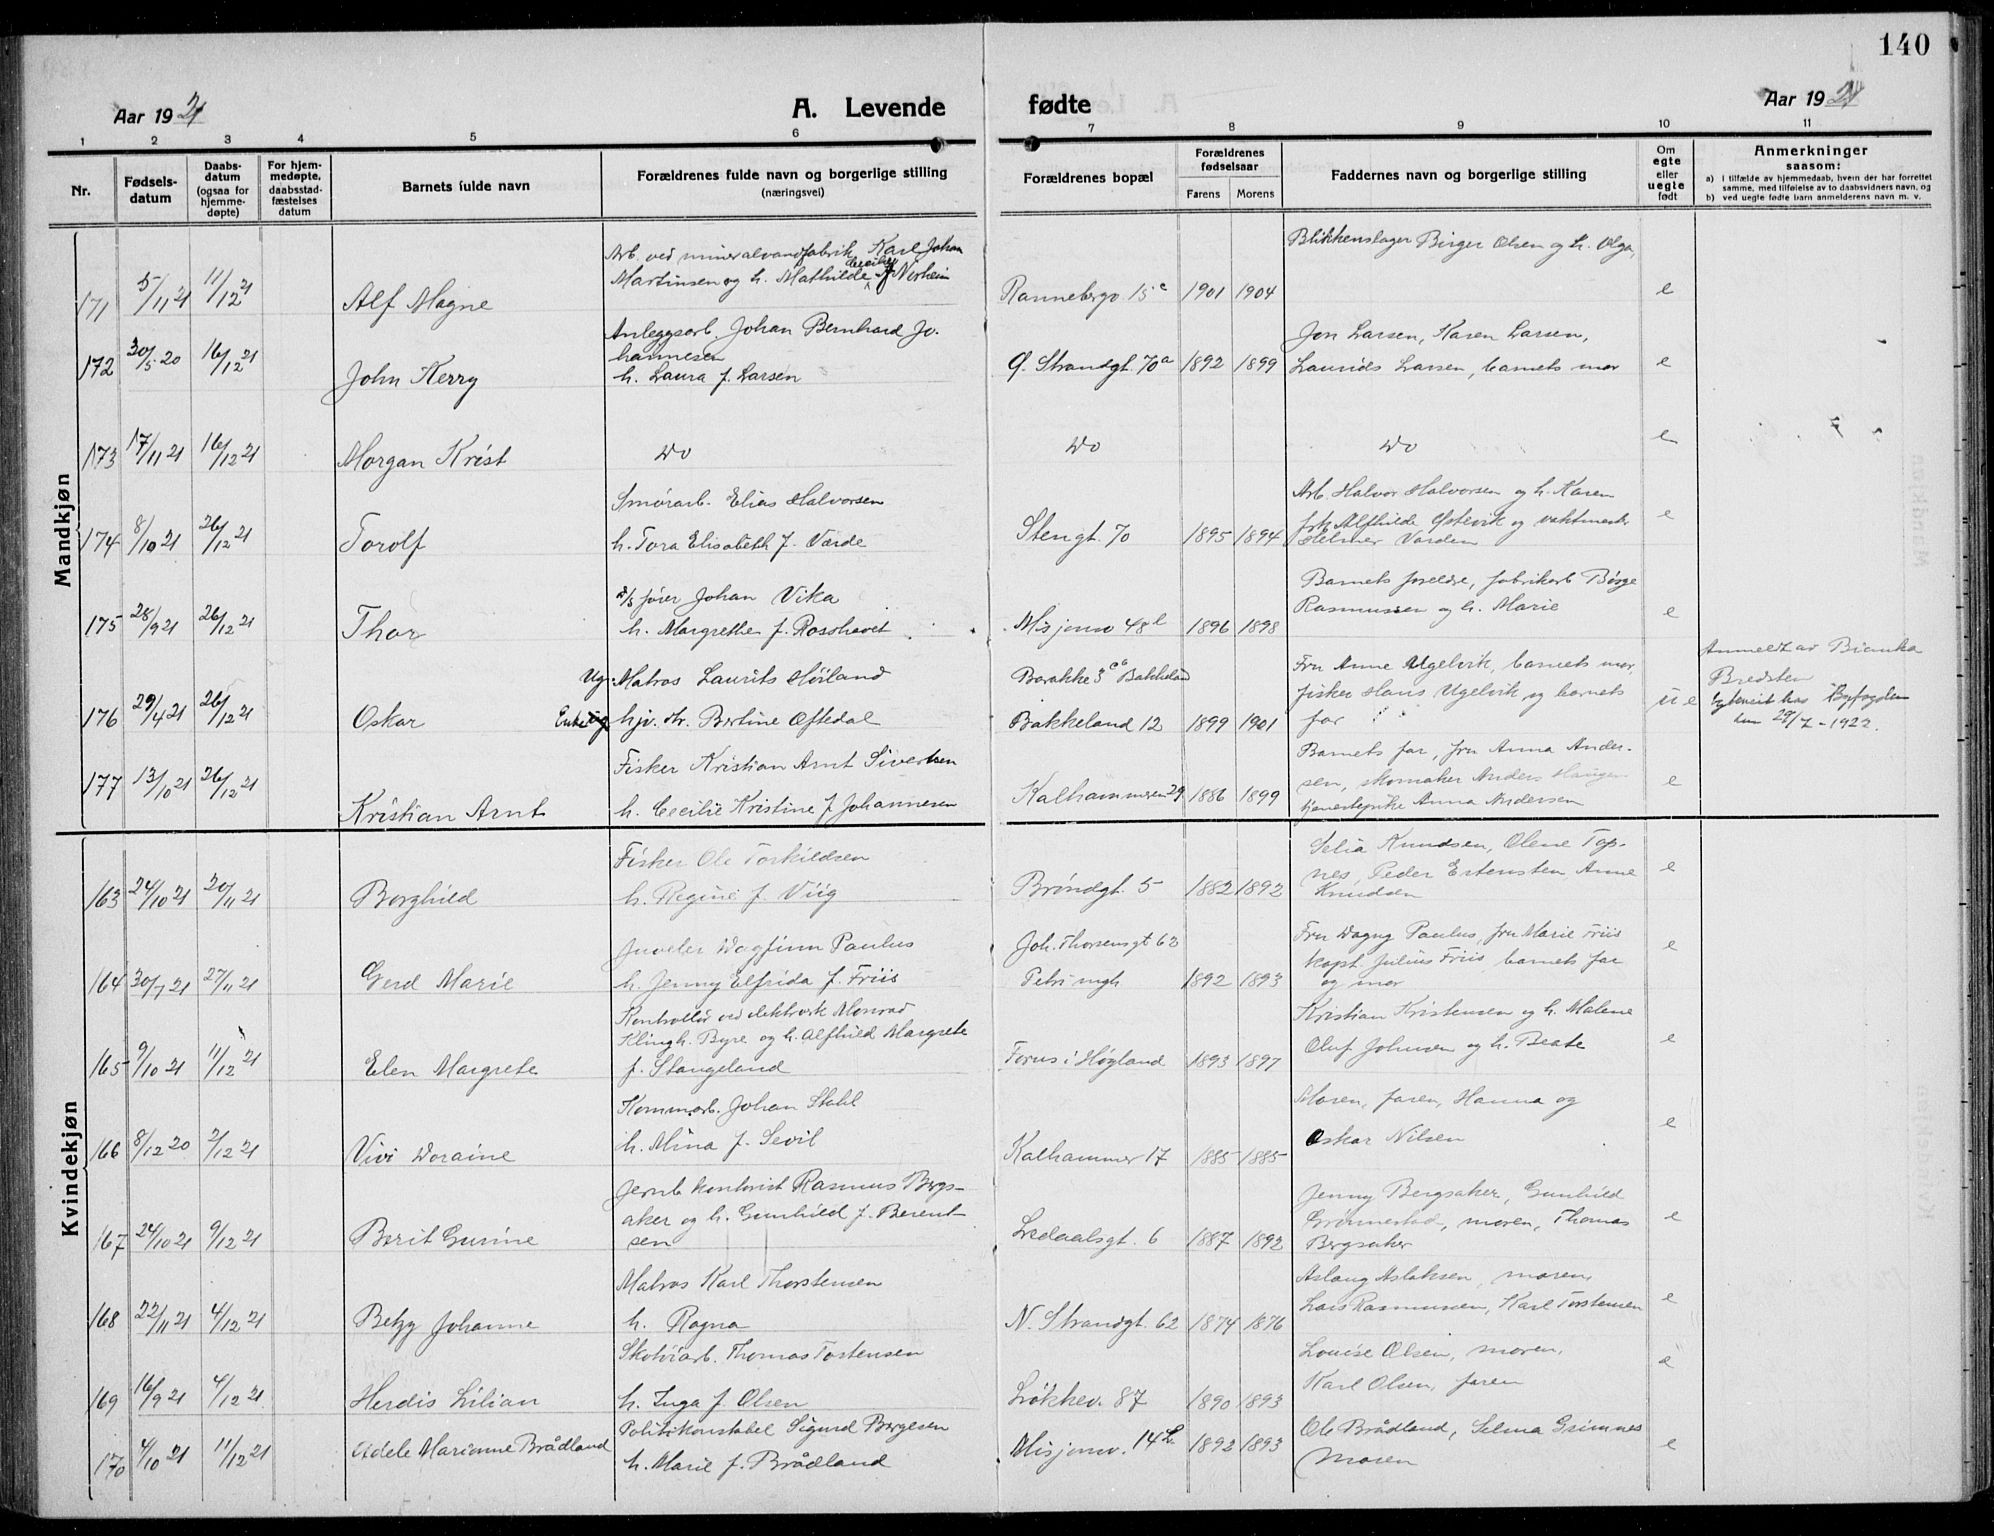 140
Aar 1921
A. Levende
fødte
Aar 1921
1 2 3 4 5 6 7 8 9 10 11
Nr.
Fødsels-
datum
Daabs-
datum
(ogsaa for
hjemme-
døpte)
For hjem-
medøpte,
daabsstad-
fæstelses
datum
Barnets fulde navn
Forældrenes fulde navn og borgerlige stilling
(næringsvei)
Forældrenes bopæl
Forældrenes
fødselsaar
Farens Morens
Faddernes navn og borgerlige stilling
Om
egte
eller
uegte
født
Anmerkninger
saasom:
a) i tilfælde av hjemmedaab, hvem der har forrettet
samme, med tilføielse av to daabsvidners navn, og
b) ved uegte fødte barn anmelderens navn m. v.
Mandkjøn
Arb. ved mineralvandfabrik Karl Johan
Martinsen og h. Mathilde Cecilie f Norheim
Blikkenslager Birger Olsen og h. Olga,
171 5/11 21 11/12 21 Alf Magne Rannebergv. 15 c 1901 1904 e
Anleggsarb. Johan Bernhard Jo-
hannesen
h. Laura f. Larsen
Jon Larsen, Karen Larsen,
Laurids Larsen, barnets mor
172 30/5 20 16/12 21 John Kerry Ø. Strandgt. 70a 1892 1899 e
173 17/11 21 16/12 21 Morgan Krist Do Do Do e
Smørarb. Elias Halvorsen
h. Tora Elisabeth f. Varde
Arb. Halvor Halvorsen og h. Karen
frk Alfhilde Østevik og vaktmester
Helmer Varden
174 8/10 21 26/12 21 Torolf Stengt. 70 1895 1894 e
d/s fører Johan Vika
h. Margrethe f. Rosshavet
Barnets forældre, fabrikarb Børge
Rasmussen og h. Marie
175 28/9 21 26/12 21 Thor Misjonsv 48 l 1896 1898 e
Ug. Matros Laurits Høiland
hjv. Hr. Bertine Oftedal
Barakke 3 Bakkeland
Bakkeland 12
Fru Anne Ugelvik, barnets mor,
fisker Hans Ugelvik og barnets
far
176 29/4 21 26/12 21 Oskar 1899 1901 u e
Anmeldt av Bianka
Bredsten
Byfogden
den 29/7 - 1922.
Fisker Kristian Arnt Sivertsen
h. Cecilie Kristine f Johannesen
Barnets far, fru Anna Ander-
sen, skomaker Anders Haugen
tjenestepike Anna Andersen
177 13/10 21 26/12 21 Kristian Arnt Kalhammeren 29 1886 1899 e
Kvindekjøn
Fisker Ole Torkildsen
h. Regine f. Viig
Selia Knudsen, Olene Top-
nes, Peder Ertensten Anne
Knudsen
163 24/10 21 20/11 21 Borghild Brøndgt. 5 1882 1892 e
Juveler Dagfinn Paulus
h. Jenny Elfrida f. Friis
Joh. Thorsensgt 62
Petri mgh
Fru Dagny Paulus, fru Marie Friis
kapt. Julius Friis barnets far
og mor
164 30/7 21 27/11 21 Gerd Marie 1892 1893 e
Kontrollør ved elektverk Monrad
Klingh. Byre og h. Alfhild Margrete
f. Stangeland
Kristian Kristensen og h. Malene
Oluf Johnsen og h. Beate
165 9/10 21 11/12 21 Elen Margrete Forus i Høyland 1893 1897 e
Kommarb. Johan Stahl
h. Mina f. Sevil
Moren, faren, Hanna og
Oskar Nilsen
166 8/12 20 2/12 21 Vivi Doraine Kalhammer 17 1885 1885 e
Jernb kontorist Rasmus Bergs-
aker og h. Gunhild f. Berent-
sen
Jenny Bergsaker, Gunhild
Grønnestad, moren, Thomas
Bergsaker
167 24/10 21 9/12 21 Berit Gurine Ledaalsgt. 6 1887 1892 e
Matros Karl Thorstensen
h. Ragna
Aslaug Aslaksen, moren,
Lars Rasmussen, Karl Torstensen
168 22/11 21 4/12 21 Betzy Johanne N. Strandgt. 62 1874 1876 e
Skotøiarb. Thomas Torstensen
h. Inga f. Olsen
Louise Olsen, moren,
Karl Olsen, faren
169 16/9 21 4/12 21 Herdis Lilian Løkkev. 87 1890 1893 e
Politikonstabel Sigurd Børgesen
h. Marie f. Brådland
Ole Brådland, Selma Grimnes
Moren
170 4/10 21 11/12 21 Adele Marianne Brådland Misjonsv. 14 b 1892 1893 e